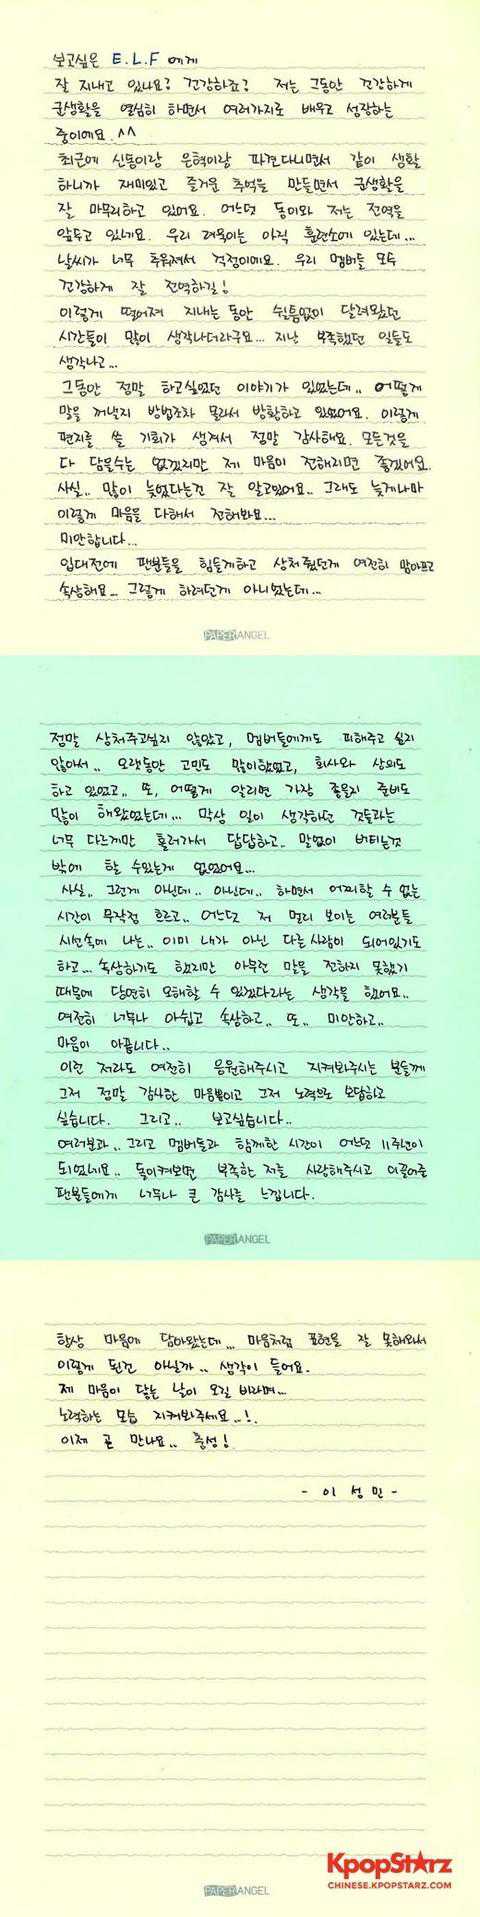 보고싶은 E.L.F 에게
잘 지내고 있나요? 건강하죠? 저는 그동안 건강하게
군생활을 열심히 하면서 여러가지로 배우고 성장하는
중이에요. ^^
최근에 신동이랑 은혁이랑 파견다니면서 같이 생활
하니까 재미있고 즐거운 추억을 만들면서 군생활을
잘 마무리하고 있어요. 어느덧 동이와 저는 전역을
앞두고 있네요. 우리 려욱이는 아직 훈련소에 있는데...
날씨가 너무 추워져서 걱정이에요. 우리 멤버들 모두
건강하게 잘 전역하길!
이렇게 떨어져 지내는 동안 쉴틈없이 달려왔던
시간들이 많이 생각나더라구요... 지난 부족했던 일들도
생각나고...
그동안 정말 하고싶었던 이야기가 있었는데.. 어떻게
말을 꺼낼지 방법조차 몰라서 방황하고 있었어요. 이렇게
편지를 쓸 기회가 생겨서 정말 감사해요. 모든것을
다 담을수는 없겠지만 제 마음이 전해지면 좋겠어요.
사실.. 많이 늦었다는건 잘 알고있어요.. 그래도 늦게나마
이렇게 마음을 다해서 전해봐요...
미안합니다...
입대전에 팬분들을 힘들게하고 상처줬던게 여전히 맘아프고
속상해요... 그렇게 하려던게 아니었는데...
PAPERANGEL
정말 상처주고싶지 않았고, 멤버들에게도 피해주고 싶지
않아서.. 오랫동안 고민도 많이했었고, 회사와 상의도
하고 있었고.. 또, 어떻게 알리면 가장 좋을지 준비도
많이 해왔었는데... 막상 일이 생각하던 것들과는
너무 다르게만 흘러가서 답답하고.. 말없이 버티는것
밖에 할 수있는게 없었어요...
사실.. 그런게 아닌데.. 아닌데.. 하면서 어찌할 수 없는
시간이 무작정 흐르고.. 어느덧 저 멀리 보이는 여러분들
시선속에 나는.. 이미 내가 아닌 다른사람이 되어있기도
하고... 속상하기도 했지만 아무런 말을 전하지 못했기
때문에 당연히 오해할 수 있겠다라는 생각을 했어요..
여전히 너무나 아쉽고 속상하고.. 또.. 미안하고..
마음이 아픕니다..
이런 저라도 여전히 응원해주시고 지켜봐주시는 분들께
그저 정말 감사한 마음뿐이고 그저 노력으로 보답하고
싶습니다. 그리고.. 보고싶습니다..
여러분과.. 그리고 멤버들과 함께한 시간이 어느덧 11주년이
되었네요.. 돌이켜보면 부족한 저를 사랑해주시고 이끌어준
팬분들에게 너무나 큰 감사를 느낍니다.
PAPERANGEL
항상 마음에 담아왔는데... 마음처럼 표현을 잘 못해와서
이렇게 된건 아닐까.. 생각이 들어요.
제 마음이 닿는 날이 오길 바라며...
노력하는 모습 지켜봐주세요..!.
이제 곧 만나요.. 충성!
- 이 성 민 -
KpopStarz
CHINESE.KPOPSTARZ.COM
PAPERANGEL